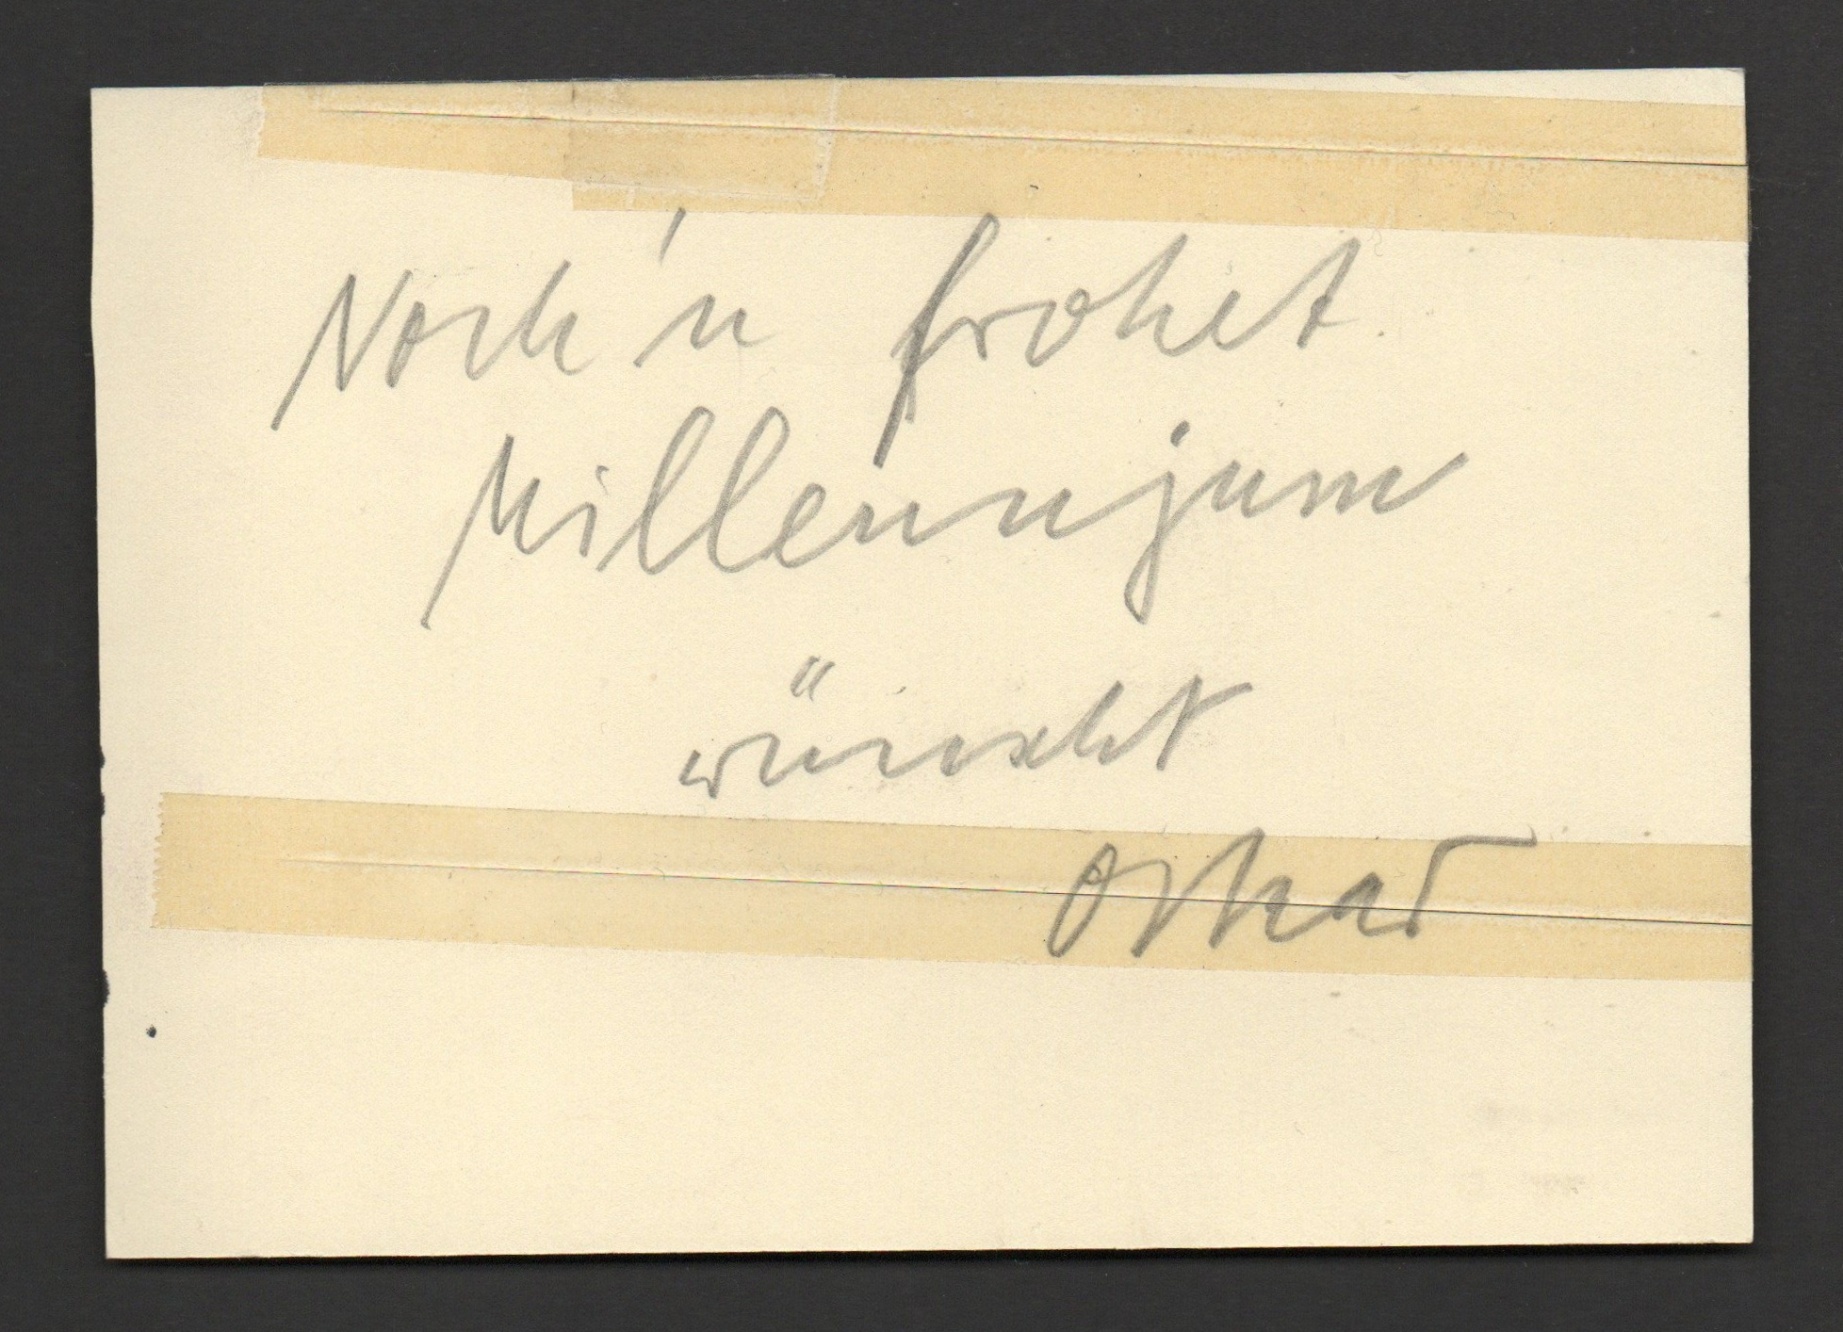 Noch'n frohet
Millennjum
wünscht
Oskar